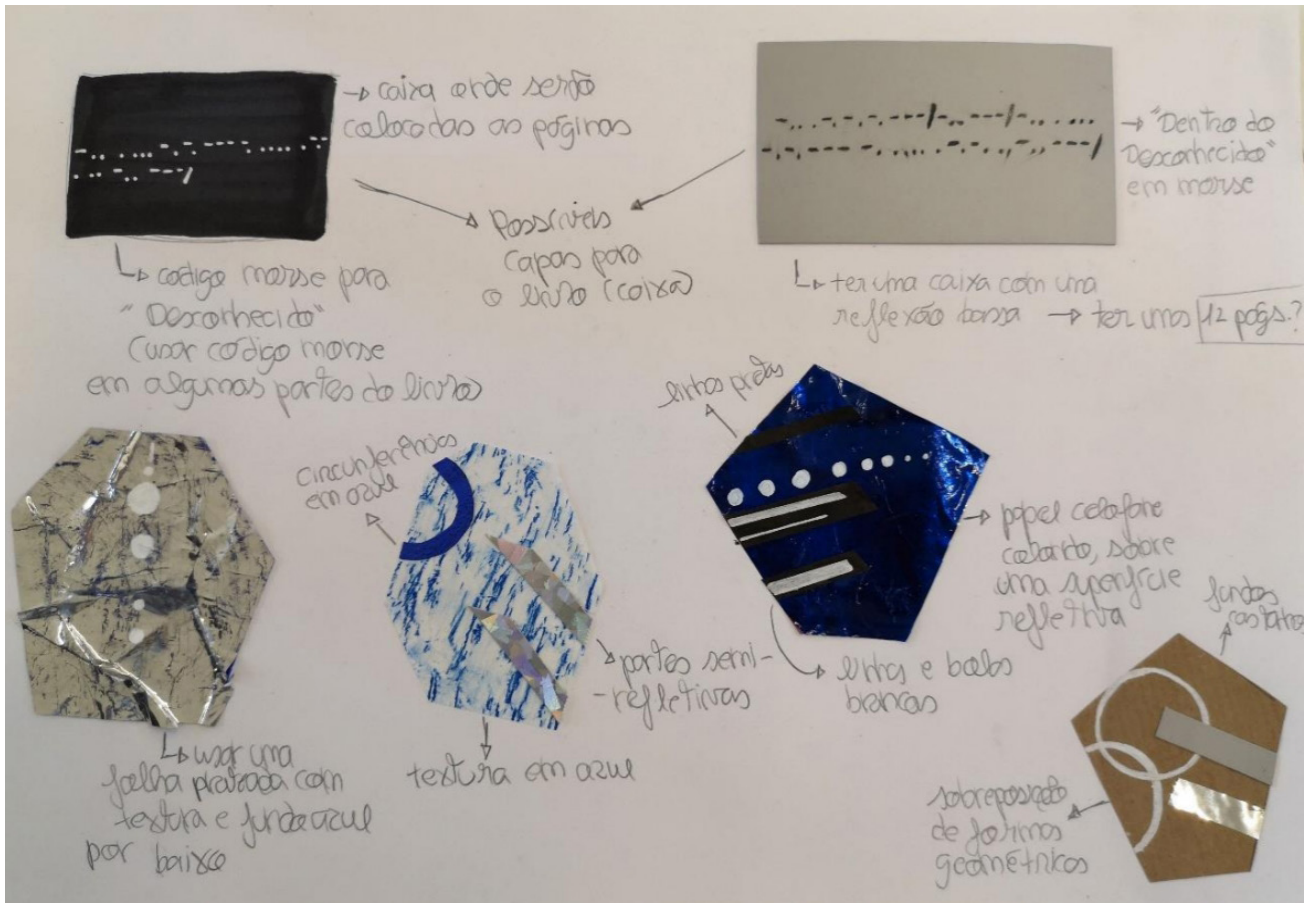 → caixa onde serão
colocadas as páginas
→ "Dentro do
Desconhecido"
em morse
Possíveis
capas para
o livro (caixa)
↳ código morse para
"Desconhecido"
(usar código morse
em algumas partes do livro)
↳ ter uma caixa com uma
reflexão baixa → ter umas 12 págs.?
linhas pretas
circunferências
em azul
→ papel celofane
colorido, sobre
uma superfície
refletiva
fundos
castanhos
→ partes semi-
-refletivas
→ linhas e bolas
brancas
↳ usar uma
folha prateada com
textura e fundo azul
por baixo
textura em azul
sobreposição
de formas
geométricas